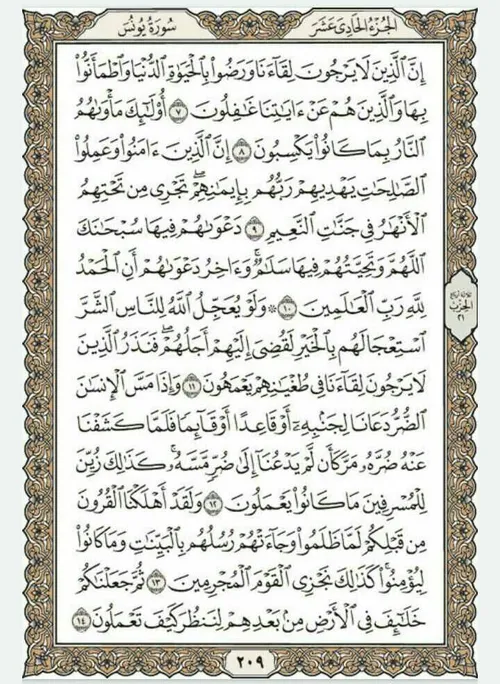 الجزء الحادي عشر
سورة يونس
إِنَّ ٱلَّذِينَ لَا يَرْجُونَ لِقَآءَنَا وَرَضُوا۟ بِٱلْحَيَوٰةِ ٱلدُّنْيَا وَٱطْمَأَنُّوا۟
بِهَا وَٱلَّذِينَ هُمْ عَنْ ءَايَـٰتِنَا غَـٰفِلُونَ ٧ أُو۟لَـٰٓئِكَ مَأْوَىٰهُمُ
ٱلنَّارُ بِمَا كَانُوا۟ يَكْسِبُونَ ٨ إِنَّ ٱلَّذِينَ ءَامَنُوا۟ وَعَمِلُوا۟
ٱلصَّـٰلِحَـٰتِ يَهْدِيهِمْ رَبُّهُم بِإِيمَـٰنِهِمْ ۖ تَجْرِى مِن تَحْتِهِمُ
ٱلْأَنْهَـٰرُ فِى جَنَّـٰتِ ٱلنَّعِيمِ ٩ دَعْوَىٰهُمْ فِيهَا سُبْحَـٰنَكَ
ٱللَّهُمَّ وَتَحِيَّتُهُمْ فِيهَا سَلَـٰمٌ ۚ وَءَاخِرُ دَعْوَىٰهُمْ أَنِ ٱلْحَمْدُ
لِلَّهِ رَبِّ ٱلْعَـٰلَمِينَ ١٠ ۞ وَلَوْ يُعَجِّلُ ٱللَّهُ لِلنَّاسِ ٱلشَّرَّ
ٱسْتِعْجَالَهُم بِٱلْخَيْرِ لَقُضِىَ إِلَيْهِمْ أَجَلُهُمْ ۖ فَنَذَرُ ٱلَّذِينَ
لَا يَرْجُونَ لِقَآءَنَا فِى طُغْيَـٰنِهِمْ يَعْمَهُونَ ١١ وَإِذَا مَسَّ ٱلْإِنسَـٰنَ
ٱلضُّرُّ دَعَانَا لِجَنۢبِهِۦٓ أَوْ قَاعِدًا أَوْ قَآئِمًا فَلَمَّا كَشَفْنَا
عَنْهُ ضُرَّهُۥ مَرَّ كَأَن لَّمْ يَدْعُنَآ إِلَىٰ ضُرٍّ مَّسَّهُۥ ۚ كَذَٰلِكَ زُيِّنَ
لِلْمُسْرِفِينَ مَا كَانُوا۟ يَعْمَلُونَ ١٢ وَلَقَدْ أَهْلَكْنَا ٱلْقُرُونَ
مِن قَبْلِكُمْ لَمَّا ظَلَمُوا۟ وَجَآءَتْهُمْ رُسُلُهُم بِٱلْبَيِّنَـٰتِ وَمَا كَانُوا۟
لِيُؤْمِنُوا۟ ۚ كَذَٰلِكَ نَجْزِى ٱلْقَوْمَ ٱلْمُجْرِمِينَ ١٣ ثُمَّ جَعَلْنَـٰكُمْ
خَلَـٰٓئِفَ فِى ٱلْأَرْضِ مِنۢ بَعْدِهِمْ لِنَنظُرَ كَيْفَ تَعْمَلُونَ ١٤
الحزب
٢١
٢٠٩